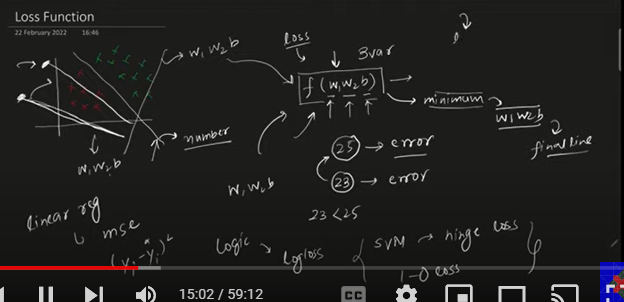 Loss Function
22 February 2022 16:46
w1 w2 b
loss
3var
f(w1 w2 b)
minimum
w1 w2 b
final line
number
25 → error
23 → error
w1 w2 b
w1 w2 b
23 < 25
linear reg
mse
(yi - ŷi)²
Logic → logloss
SVM → hinge loss
1-0 loss
15:02 / 59:12
CC